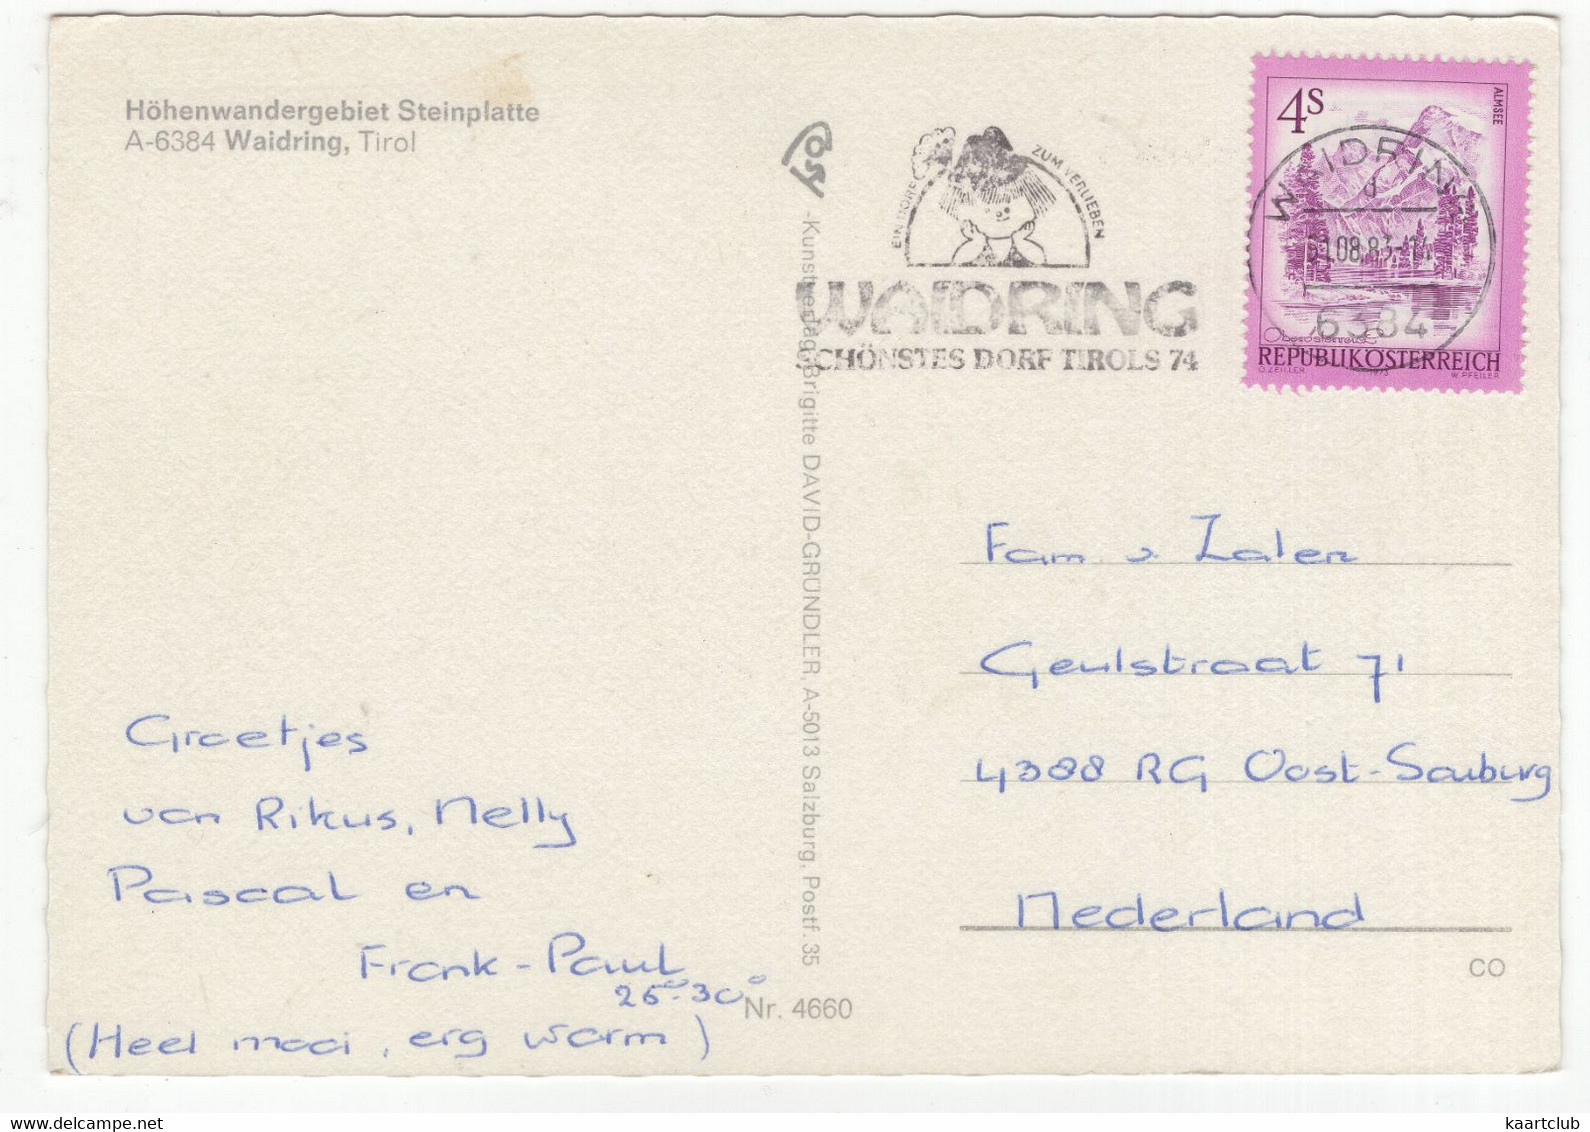 Höhenwandergebiet Steinplatte
A-6384 Waidring, Tirol
EIN DORF ZUM VERLIEBEN
WAIDRING
SCHÖNSTES DORF TIROLS 74
4S
ALMSEE
WAIDRING
08.83-14
6384
REPUBLIK ÖSTERREICH
O. ZEILLER 1973 W. PFEILER
-Kunstverlag Brigitte DAVID-GRÜNDLER, A-5013 Salzburg, Postf. 35
Fam. v. Zalen
Geulstraat 71
4388 RG Oost-Souburg
Nederland
CO
Groetjes
van Rikus, Nelly
Pascal en
Frank-Paul
25°-30°
(Heel mooi, erg warm)
Nr. 4660
kaartclub
www.delcampe.net